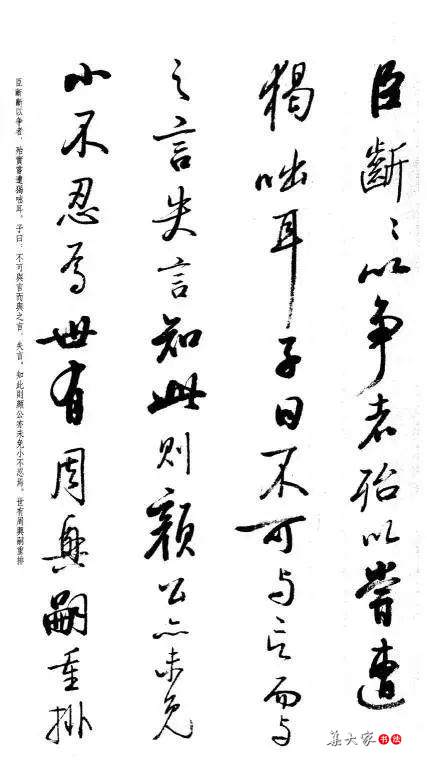 臣斷〻以争者殆以嘗遭
猲咄耳子曰不可与言而与
之言失言知此則顔公亦未免
小不忍焉世有周興嗣重排
臣斷斷以争者，殆實嘗遭猲咄耳。子曰：不可與言而與之言，失言。知此則顔公亦未免小不忍焉。世有周興嗣重排
集大家书法